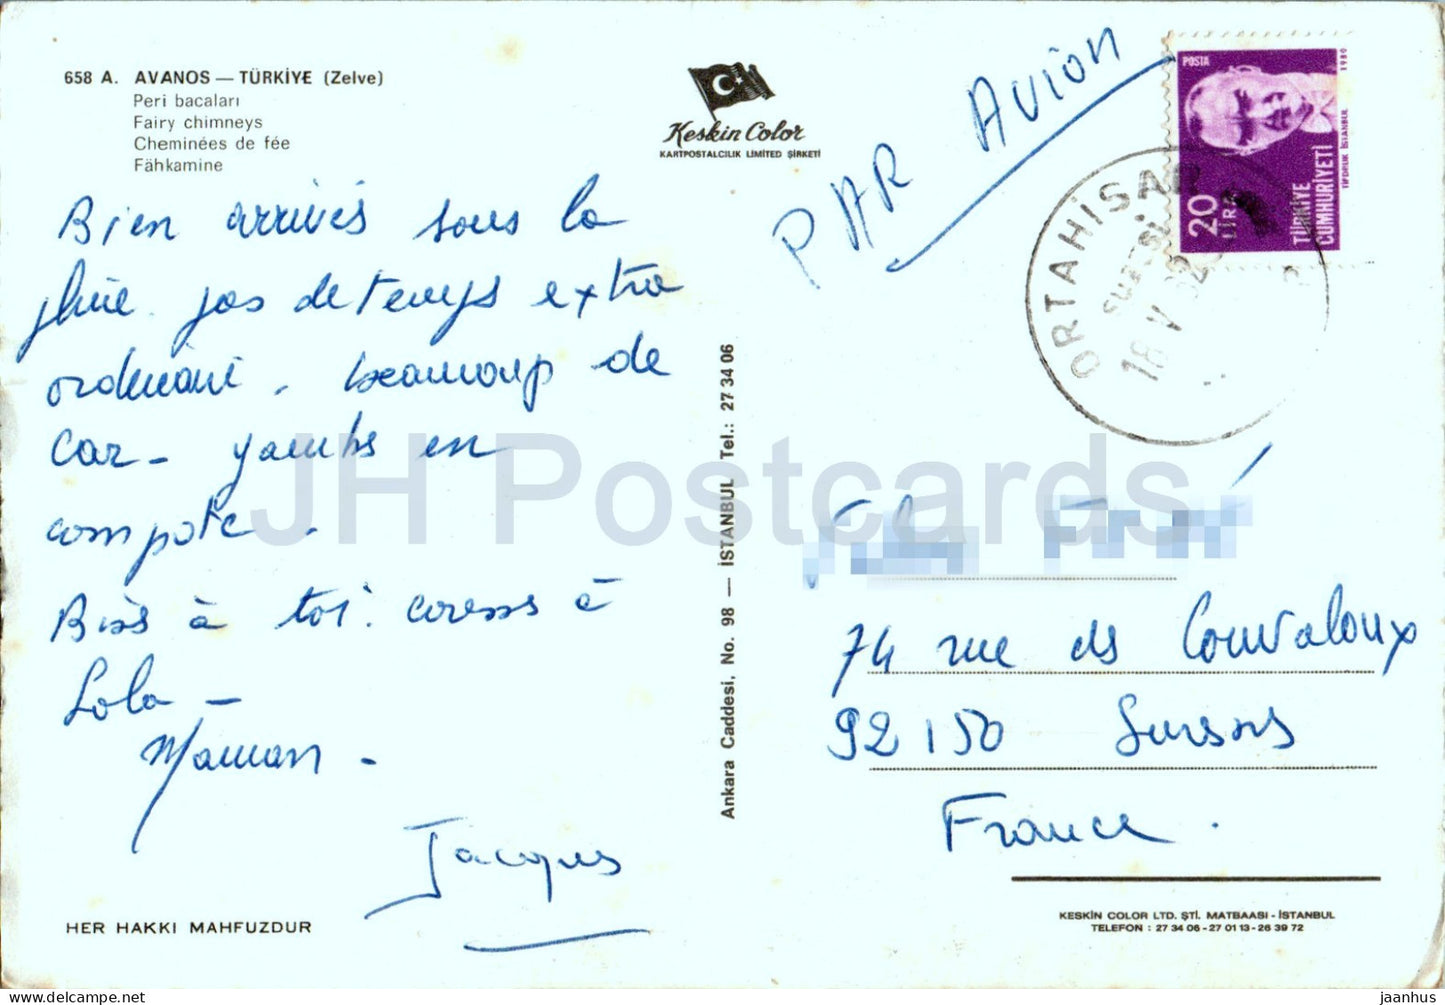 658 A. AVANOS — TÜRKİYE (Zelve)
Peri bacaları
Fairy chimneys
Cheminées de fée
Fähkamine
Keskin Color
KARTPOSTALCILIK LIMITED ŞİRKETİ
PAR Avion
POSTA
1980
20
LİRA
TÜRKİYE
CUMHURİYETİ
TİFDRUK İSTANBUL
ORTAHİSAR
18 V 82
Bien arrivés sous la
pluie. pas de temps extra
ordinaire. beaucoup de
car - jambes en
compote.
Bises à toi. caresses à
Lola -
Maman -
Jacques
Ankara Caddesi, No. 98 — İSTANBUL Tel.: 27 34 06
74 rue des Couvaloux
92150 Suresnes
France.
HER HAKKI MAHFUZDUR
KESKİN COLOR LTD. ŞTİ. MATBAASI - İSTANBUL
TELEFON : 27 34 06 - 27 01 13 - 26 39 72
JH Postcards
jaanhus